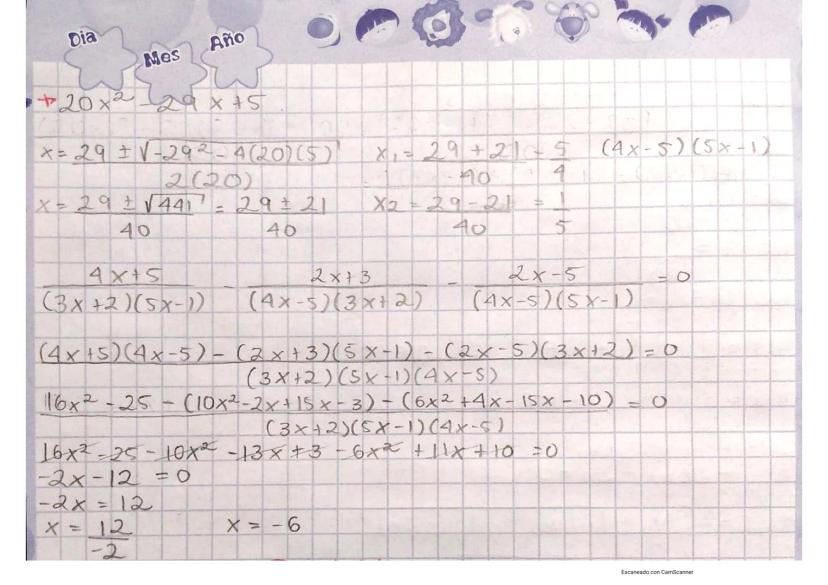 Dia
Mes
Año
+20x² - 29x+5
x = 29 ± √-29² - 4(20)(5) / 2(20)
x₁ = 29 + 21 / 40 = 5/4
(4x-5)(5x-1)
x = 29 ± √441 / 40 = 29 ± 21 / 40
x2 = 29 - 21 / 40 = 1/5
4x+5 / (3x+2)(5x-1) - 2x+3 / (4x-5)(3x+2) - 2x-5 / (4x-5)(5x-1) = 0
(4x+5)(4x-5) - (2x+3)(5x-1) - (2x-5)(3x+2) = 0
(3x+2)(5x-1)(4x-5)
16x² - 25 - (10x²-2x+15x-3) - (6x²+4x-15x-10) = 0
(3x+2)(5x-1)(4x-5)
16x² - 25 - 10x² - 13x + 3 - 6x² + 11x + 10 = 0
-2x - 12 = 0
-2x = 12
x = 12 / -2
x = -6
Escaneado con CamScanner